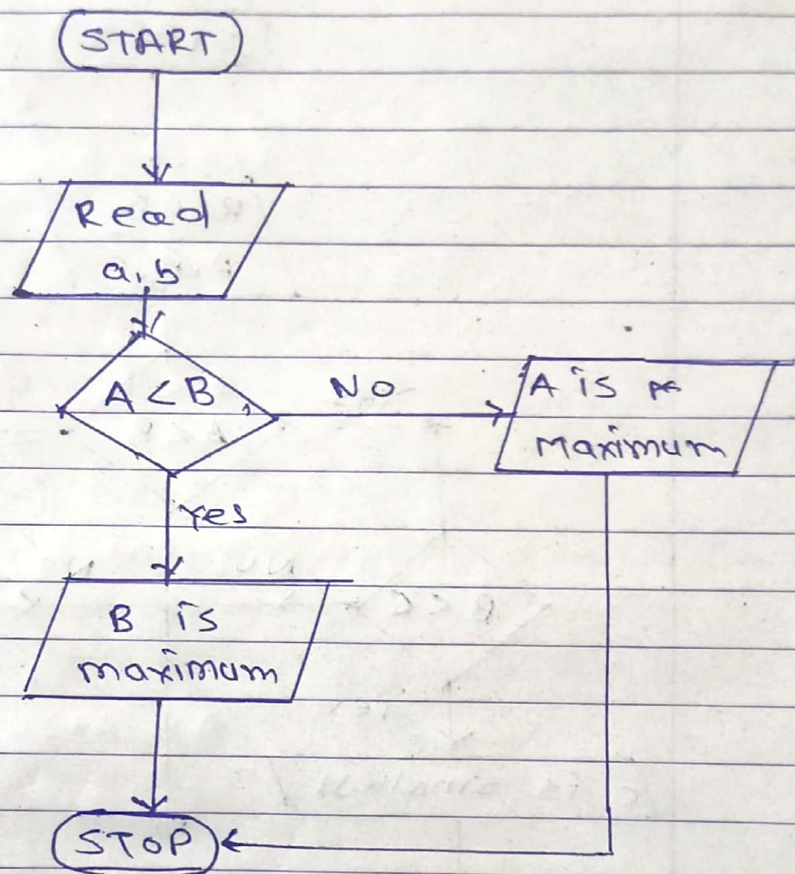 START
Read
a, b
A < B
NO
A is
Maximum
Yes
B is
maximum
STOP